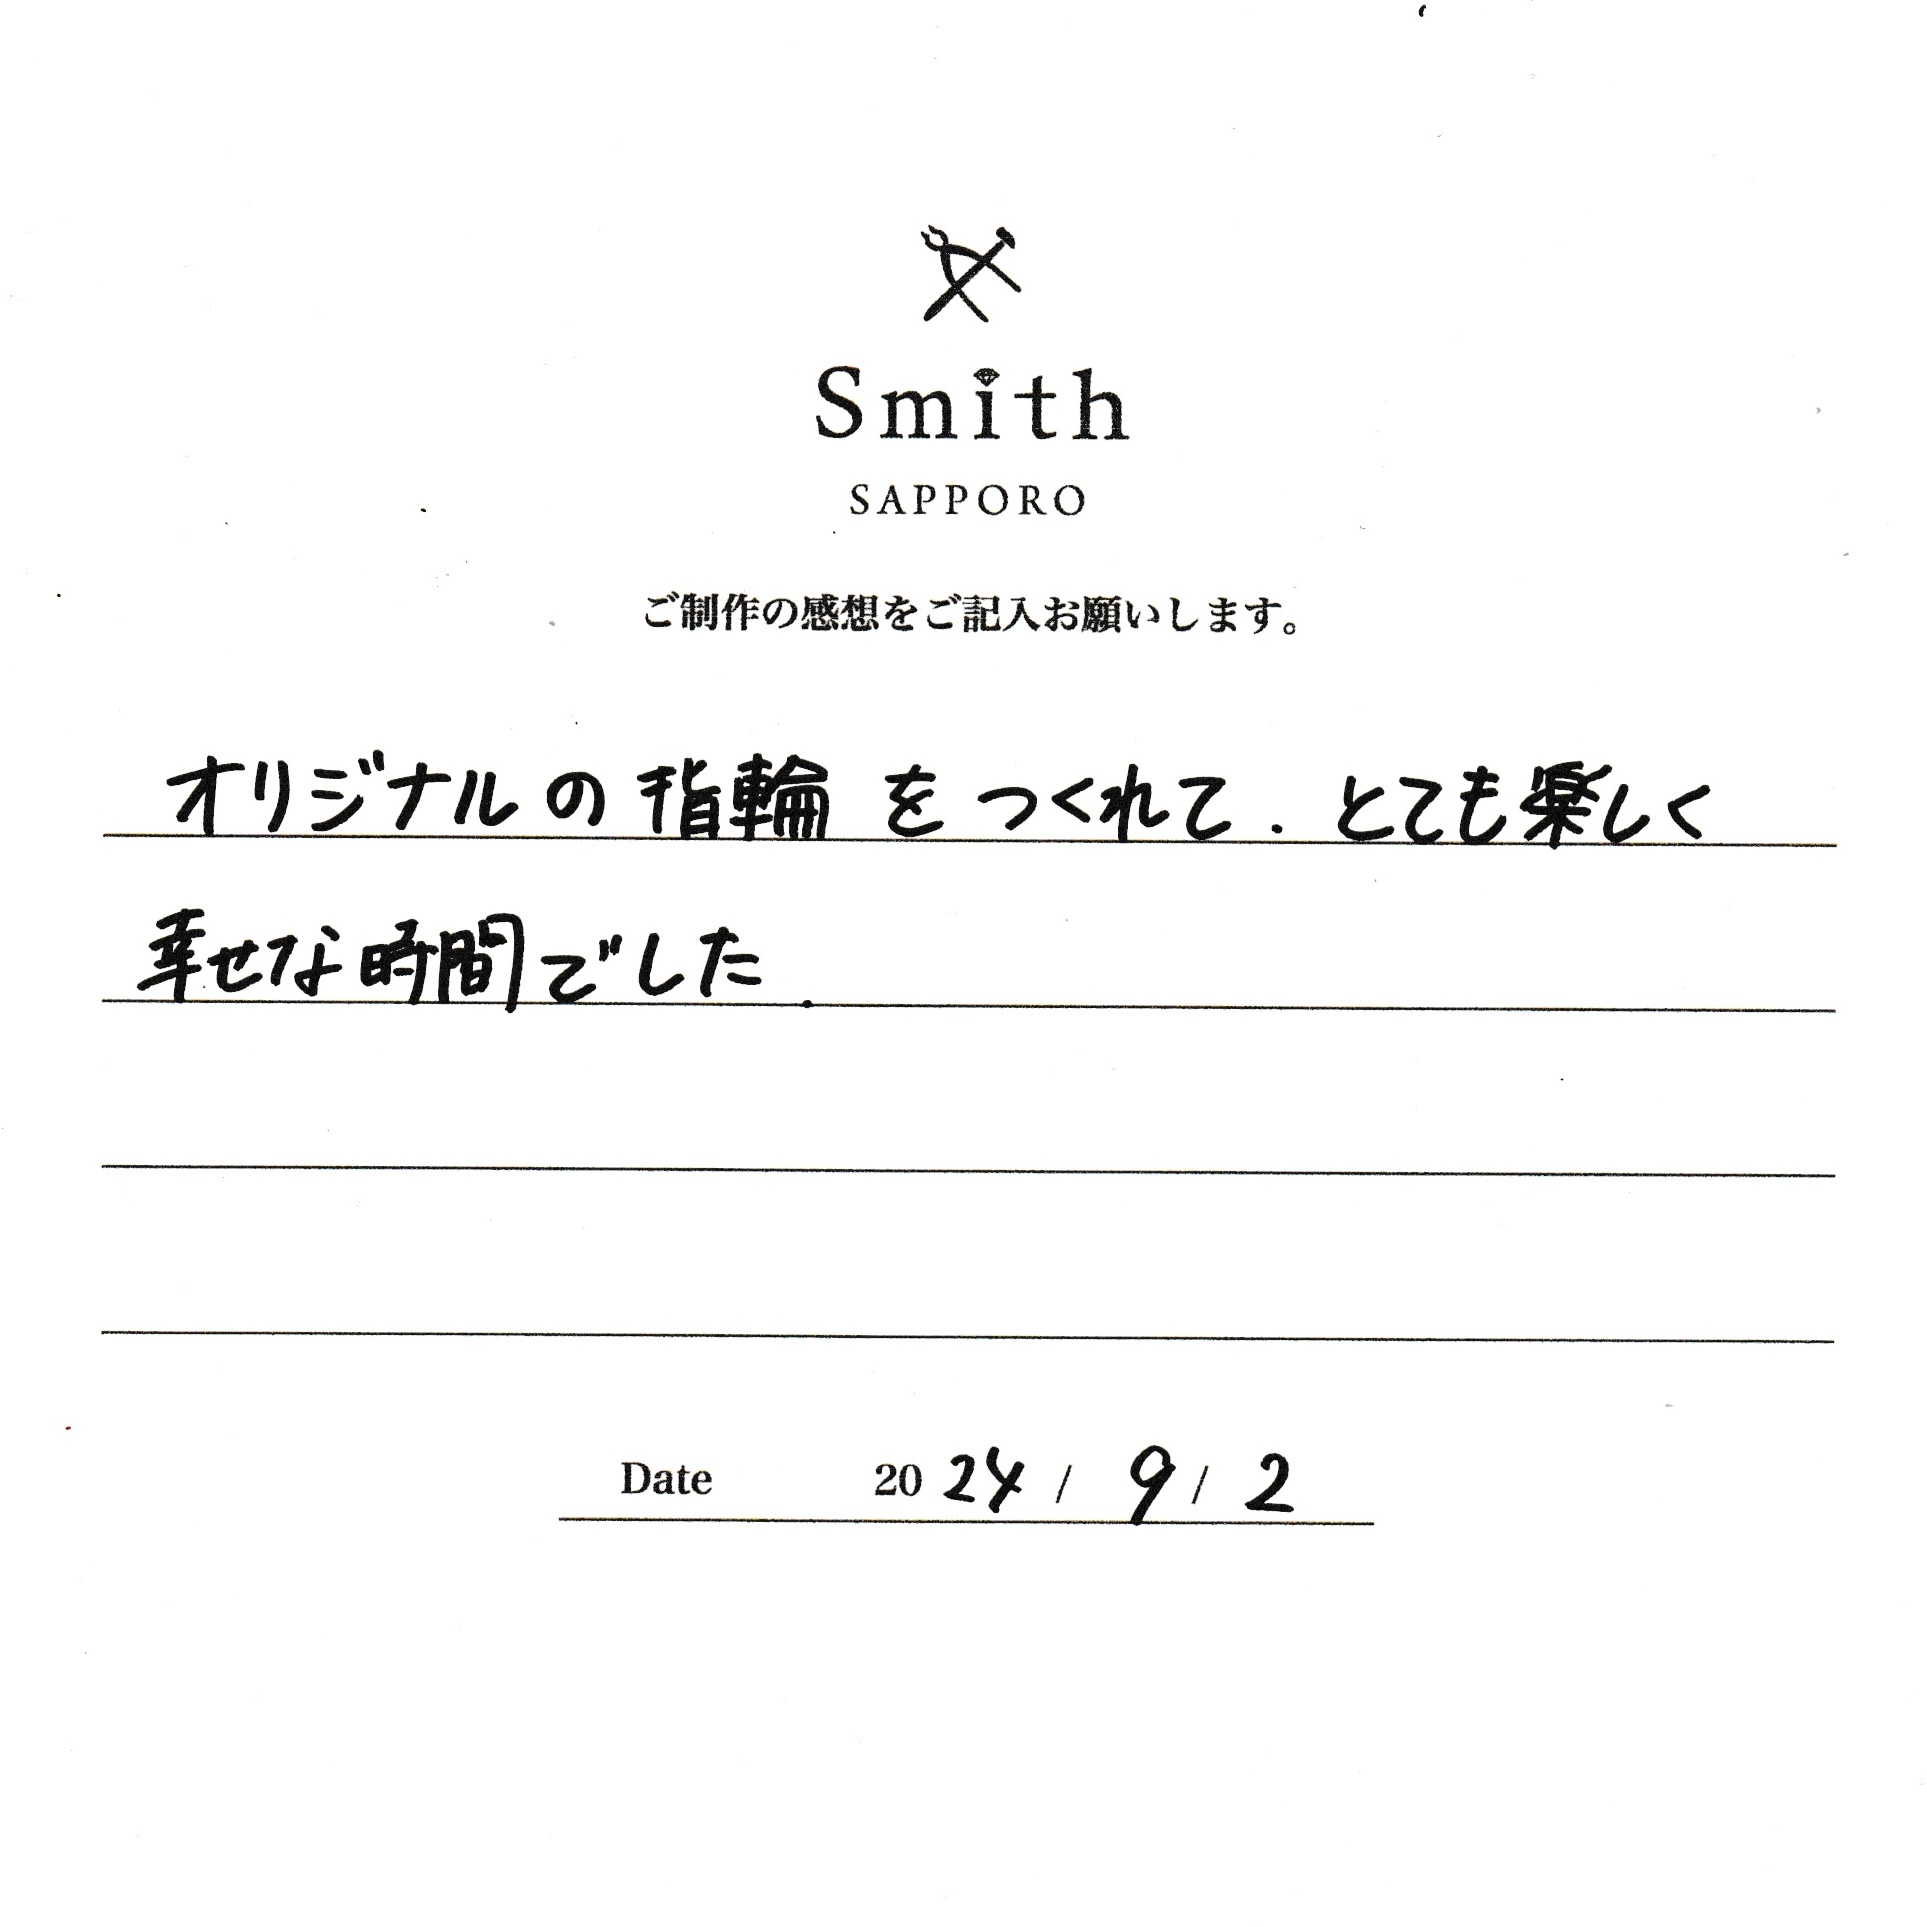 Smith
SAPPORO
ご制作の感想をご記入お願いします。
オリジナルの指輪をつくれて.とても楽しく
幸せな時間でした.
Date 2024 / 9 / 2